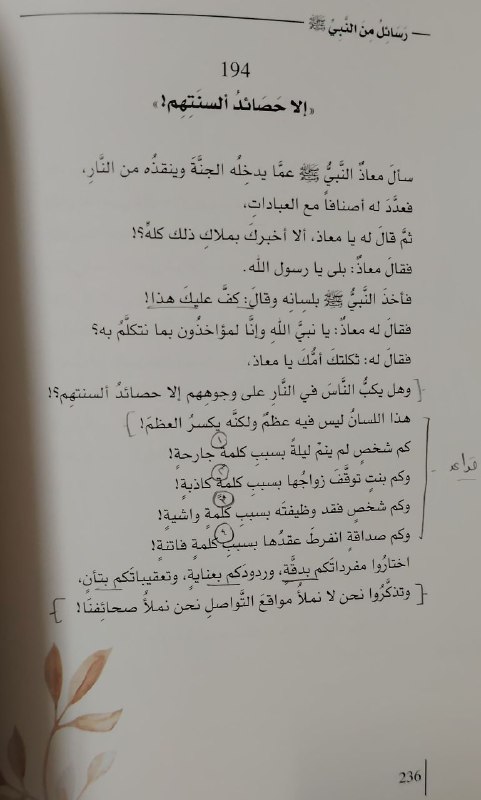 رَسَائِلُ مِنَ النَّبِيِّ ﷺ
194
«إلا حَصَائدُ ألسنَتِهِم!»
سألَ معاذٌ النَّبيَّ ﷺ عمَّا يدخِلُه الجنَّةَ وينقذُه من النَّارِ،
فعدَّدَ له أصنافاً مع العباداتِ،
ثمَّ قالَ له يا معاذ، ألا أخبركَ بملاكِ ذلك كلهِ؟!
فقالَ معاذٌ: بلى يا رسول الله.
فأخذَ النَّبيُّ ﷺ بلسانِه وقالَ: كفَّ عليكَ هذا!
فقالَ له معاذٌ: يا نبيَّ اللهِ وإنَّا لمؤاخذُون بما نتكلَّمُ به؟
فقالَ له: ثكلتكَ أمُّكَ يا معاذ،
وهل يكبُّ النَّاسَ في النَّارِ على وجوهِهم إلا حصائدُ ألسنتهِم؟!
هذا اللسانُ ليس فيه عظمٌ ولكنَّه يكسرُ العظمَ!
كم شخصٍ لم ينمْ ليلةً بسببِ كلمةٍ جارحةٍ!
١
وكم بنتٍ توقَّفَ زواجُها بسببِ كلمةٍ كاذبةٍ!
٢
قراءه
وكم شخصٍ فقد وظيفتَه بسببِ كلمةٍ واشيةٍ!
وكم صداقةٍ انفرطَ عقدُها بسببِ كلمةٍ فاتنةٍ!
اختارُوا مفرداتَكم بدقَّةٍ، وردودَكم بعنايةٍ، وتعقيباتَكم بتأنٍ،
وتذكَّرُوا نحن لا نملأُ مواقعَ التَّواصلِ نحن نملأُ صحائِفنَا!
236